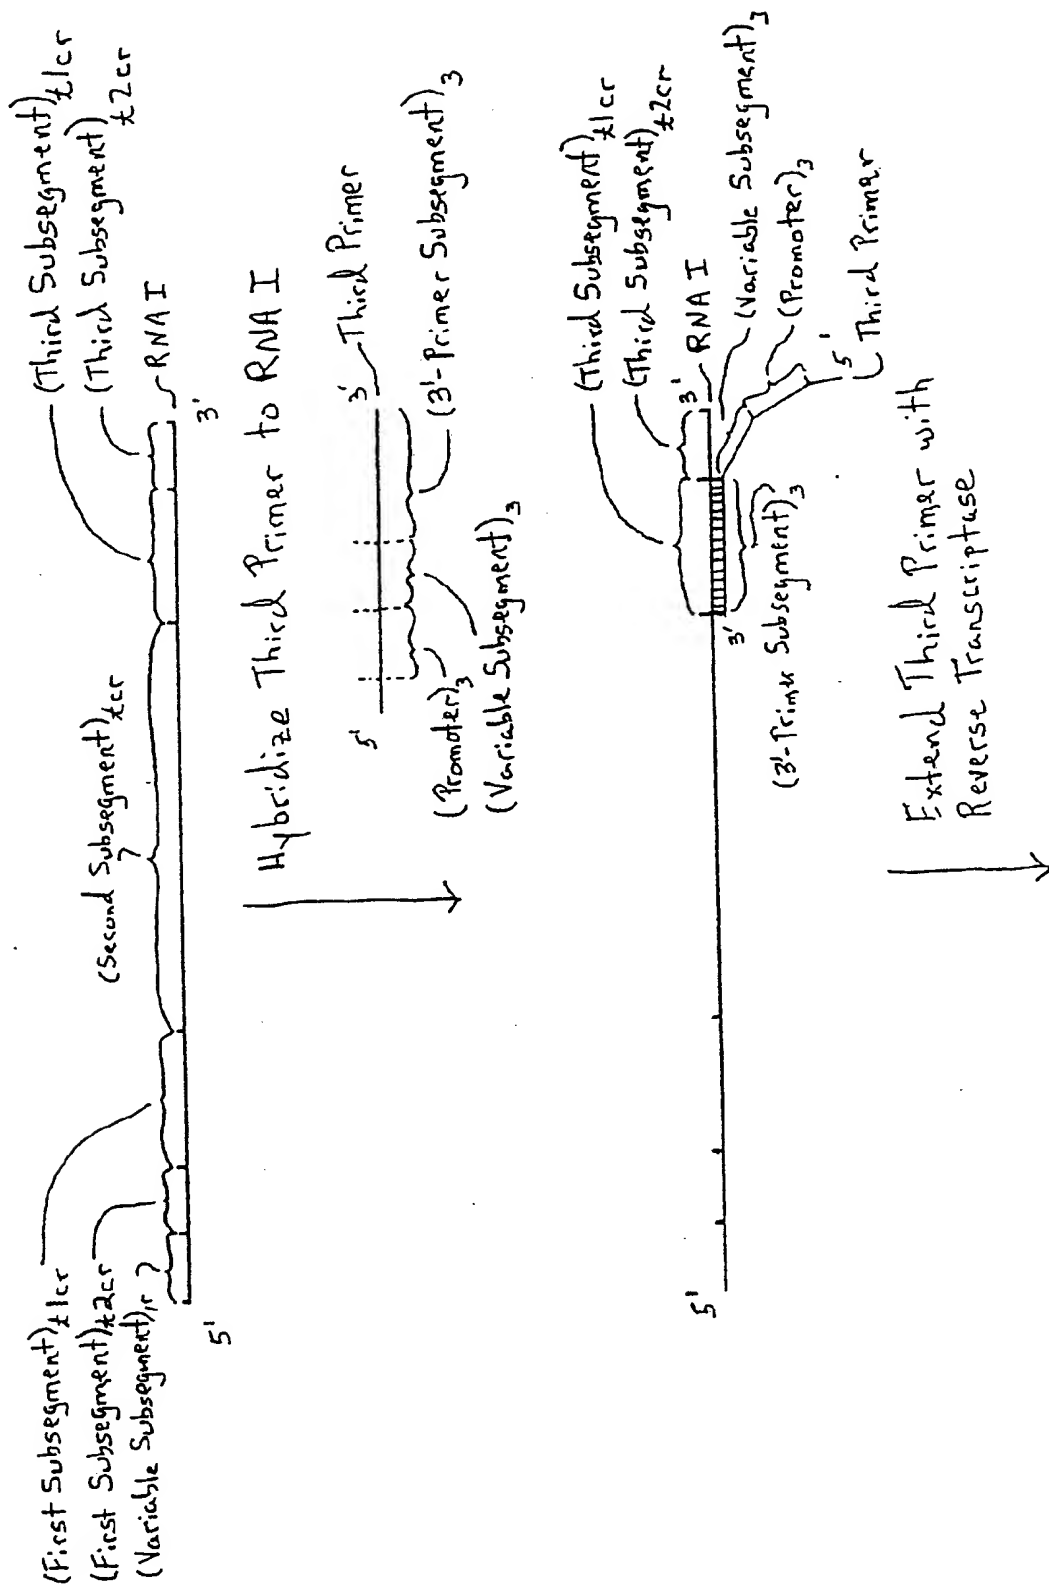 (First Subsegment)t1cr
(First Subsegment)t2cr
(Variable Subsegment)1r
5'
(Second Subsegment)tcr
(Third Subsegment)t1cr
(Third Subsegment)t2cr
RNA I
3'
Hybridize Third Primer to RNA I
5'
3'
Third Primer
(Promoter)3
(Variable Subsegment)3
(3'-Primer Subsegment)3
5'
(Third Subsegment)t1cr
(Third Subsegment)t2cr
3'
RNA I
(Variable Subsegment)3
(Promoter)3
5'
Third Primer
3'
(3'-Primer Subsegment)3
Extend Third Primer with
Reverse Transcriptase